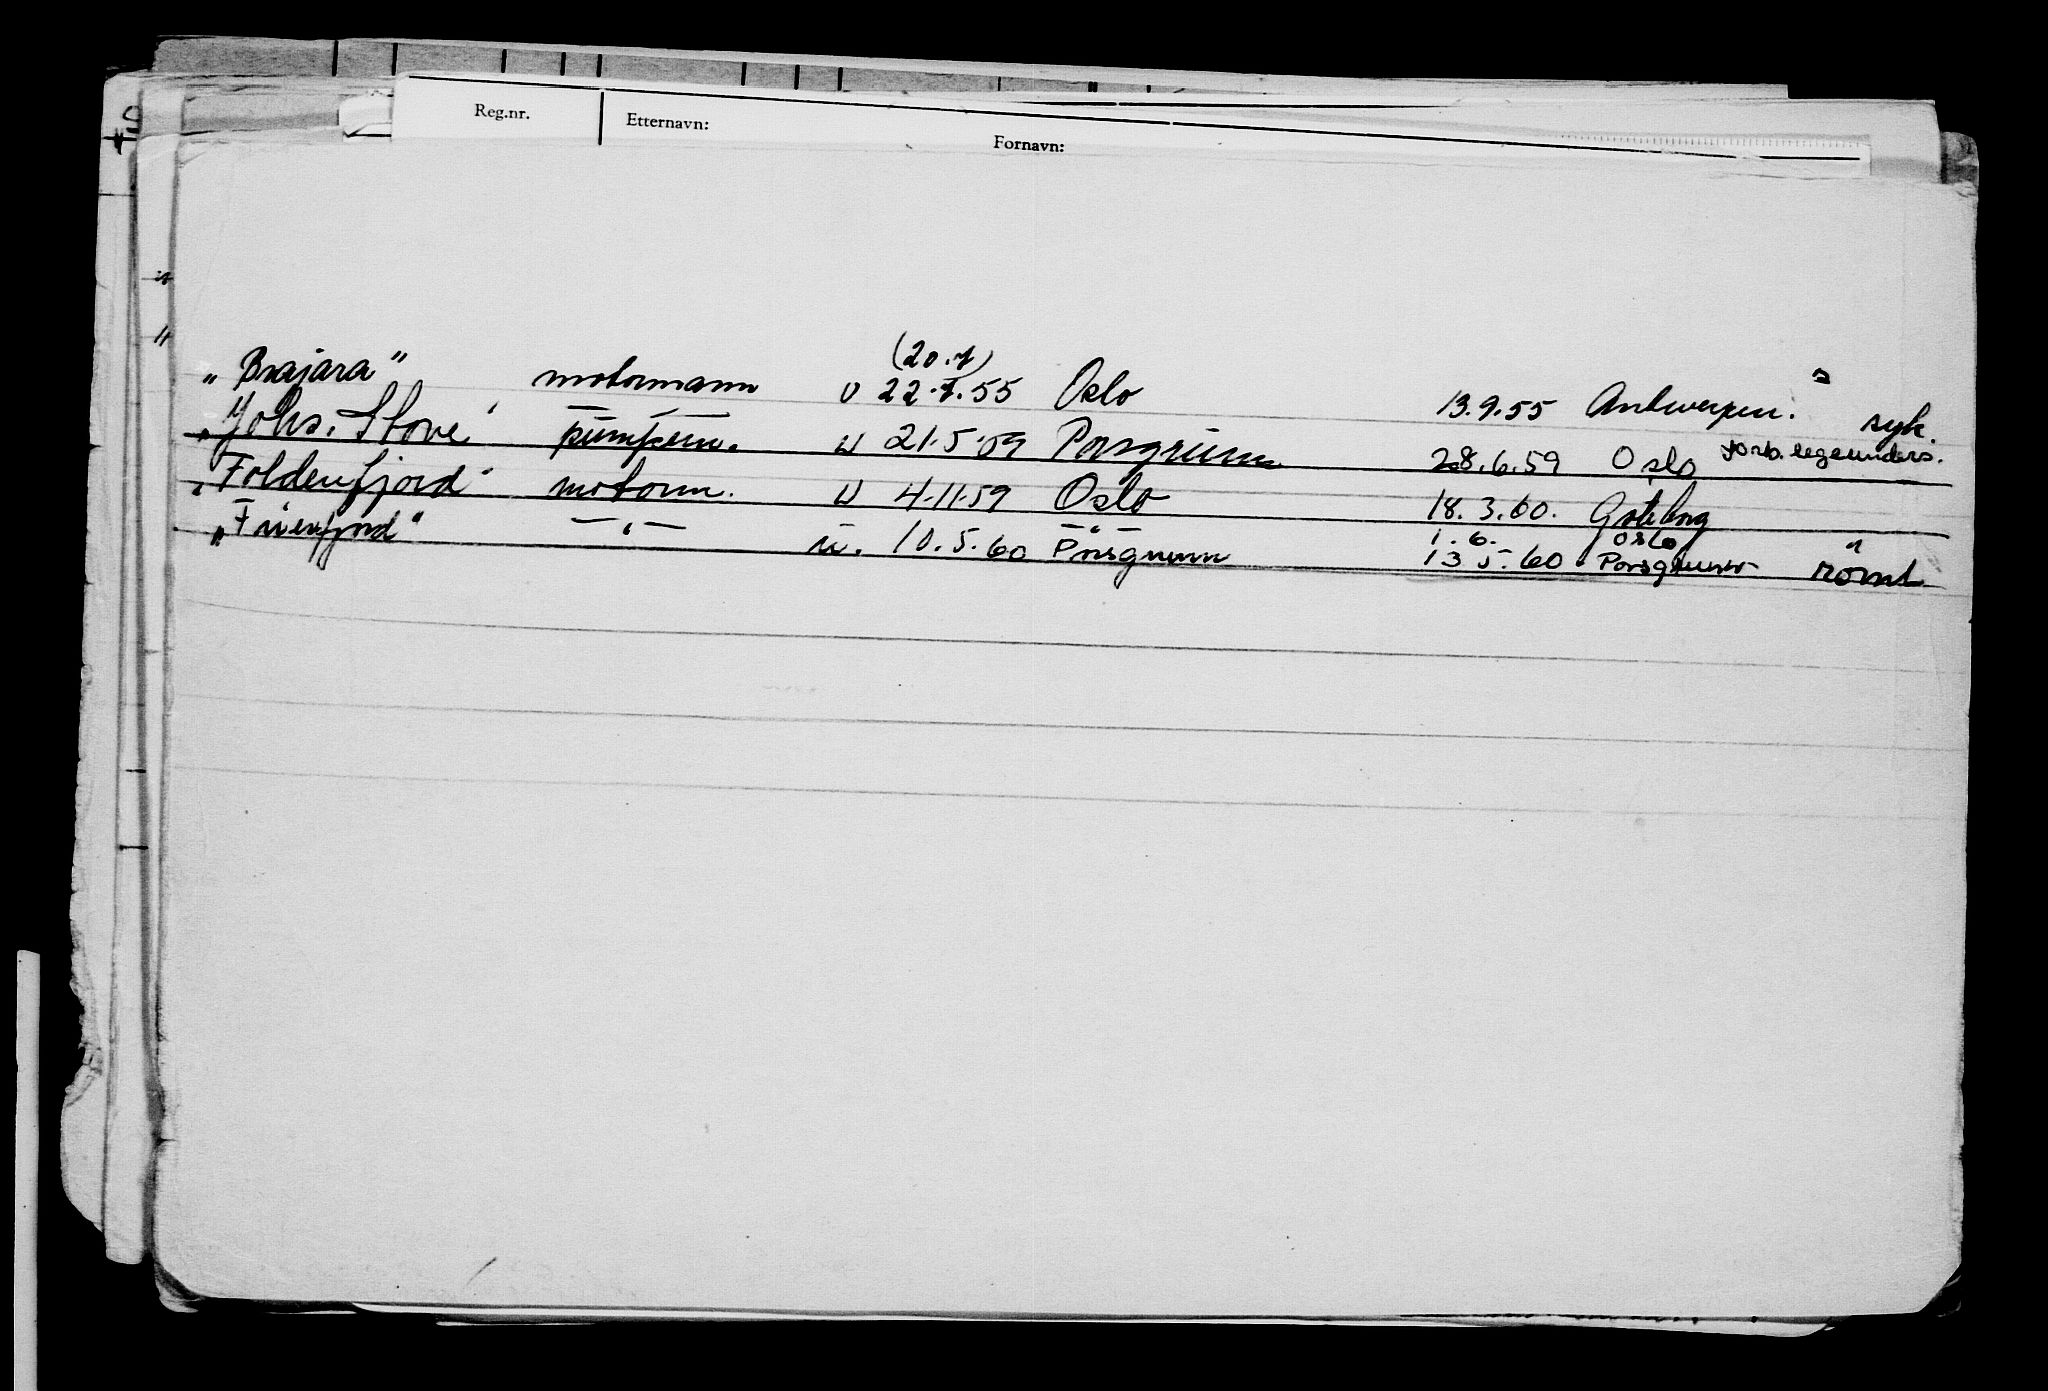 Reg.nr. Etternavn: Fornavn:
(20.7)
„Brajara" motormann u 22.7.55 Oslo 13.9.55 Antwerpen. syk.
„Johs. Stove" pumpem. u 21.5.59 Porsgrunn 28.6.59 Oslo forb. legeunders.
„Foldenfjord" motorm. u 4.11.59 Oslo 18.3.60. Gøteborg
1.6. Oslo
„Frierfjord" —"— u. 10.5.60 Porsgrunn 13.5.60 Porsgrunn rømt